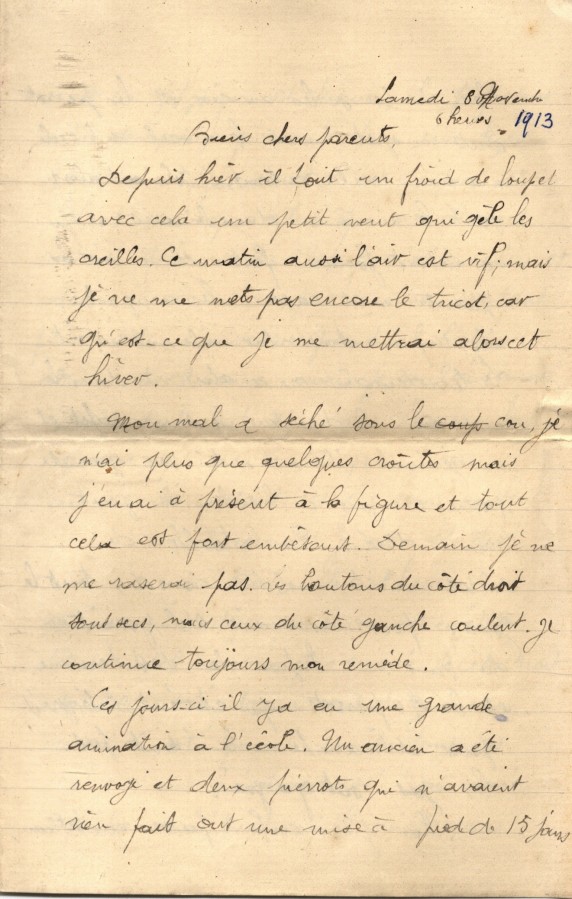 Samedi 8 Novembre
6 heures 1913
Biens chers parents,
Depuis hièr il fait un froid de loup et
avec cela un petit vent qui gèle les
oreilles. Ce matin aussi l'air est vif; mais
je ne me mets pas encore le tricot, car
qu'est-ce que je me mettrai alors cet
hiver.
Mon mal a séché sous le coup cou, je
n'ai plus que quelques croûtes mais
j'en ai à présent à la figure et tout
cela est fort embêtant. Demain je ne
me raserai pas. Les boutons du côté droit
sont secs, mais ceux du côté gauche coulent. Je
continue toujours mon remède.
Ces jours-ci il y a eu une grande
animation à l'école. Un ancien a été
renvoyé et deux pierrots qui n'avaient
rien fait ont une mise à pied de 15 jours